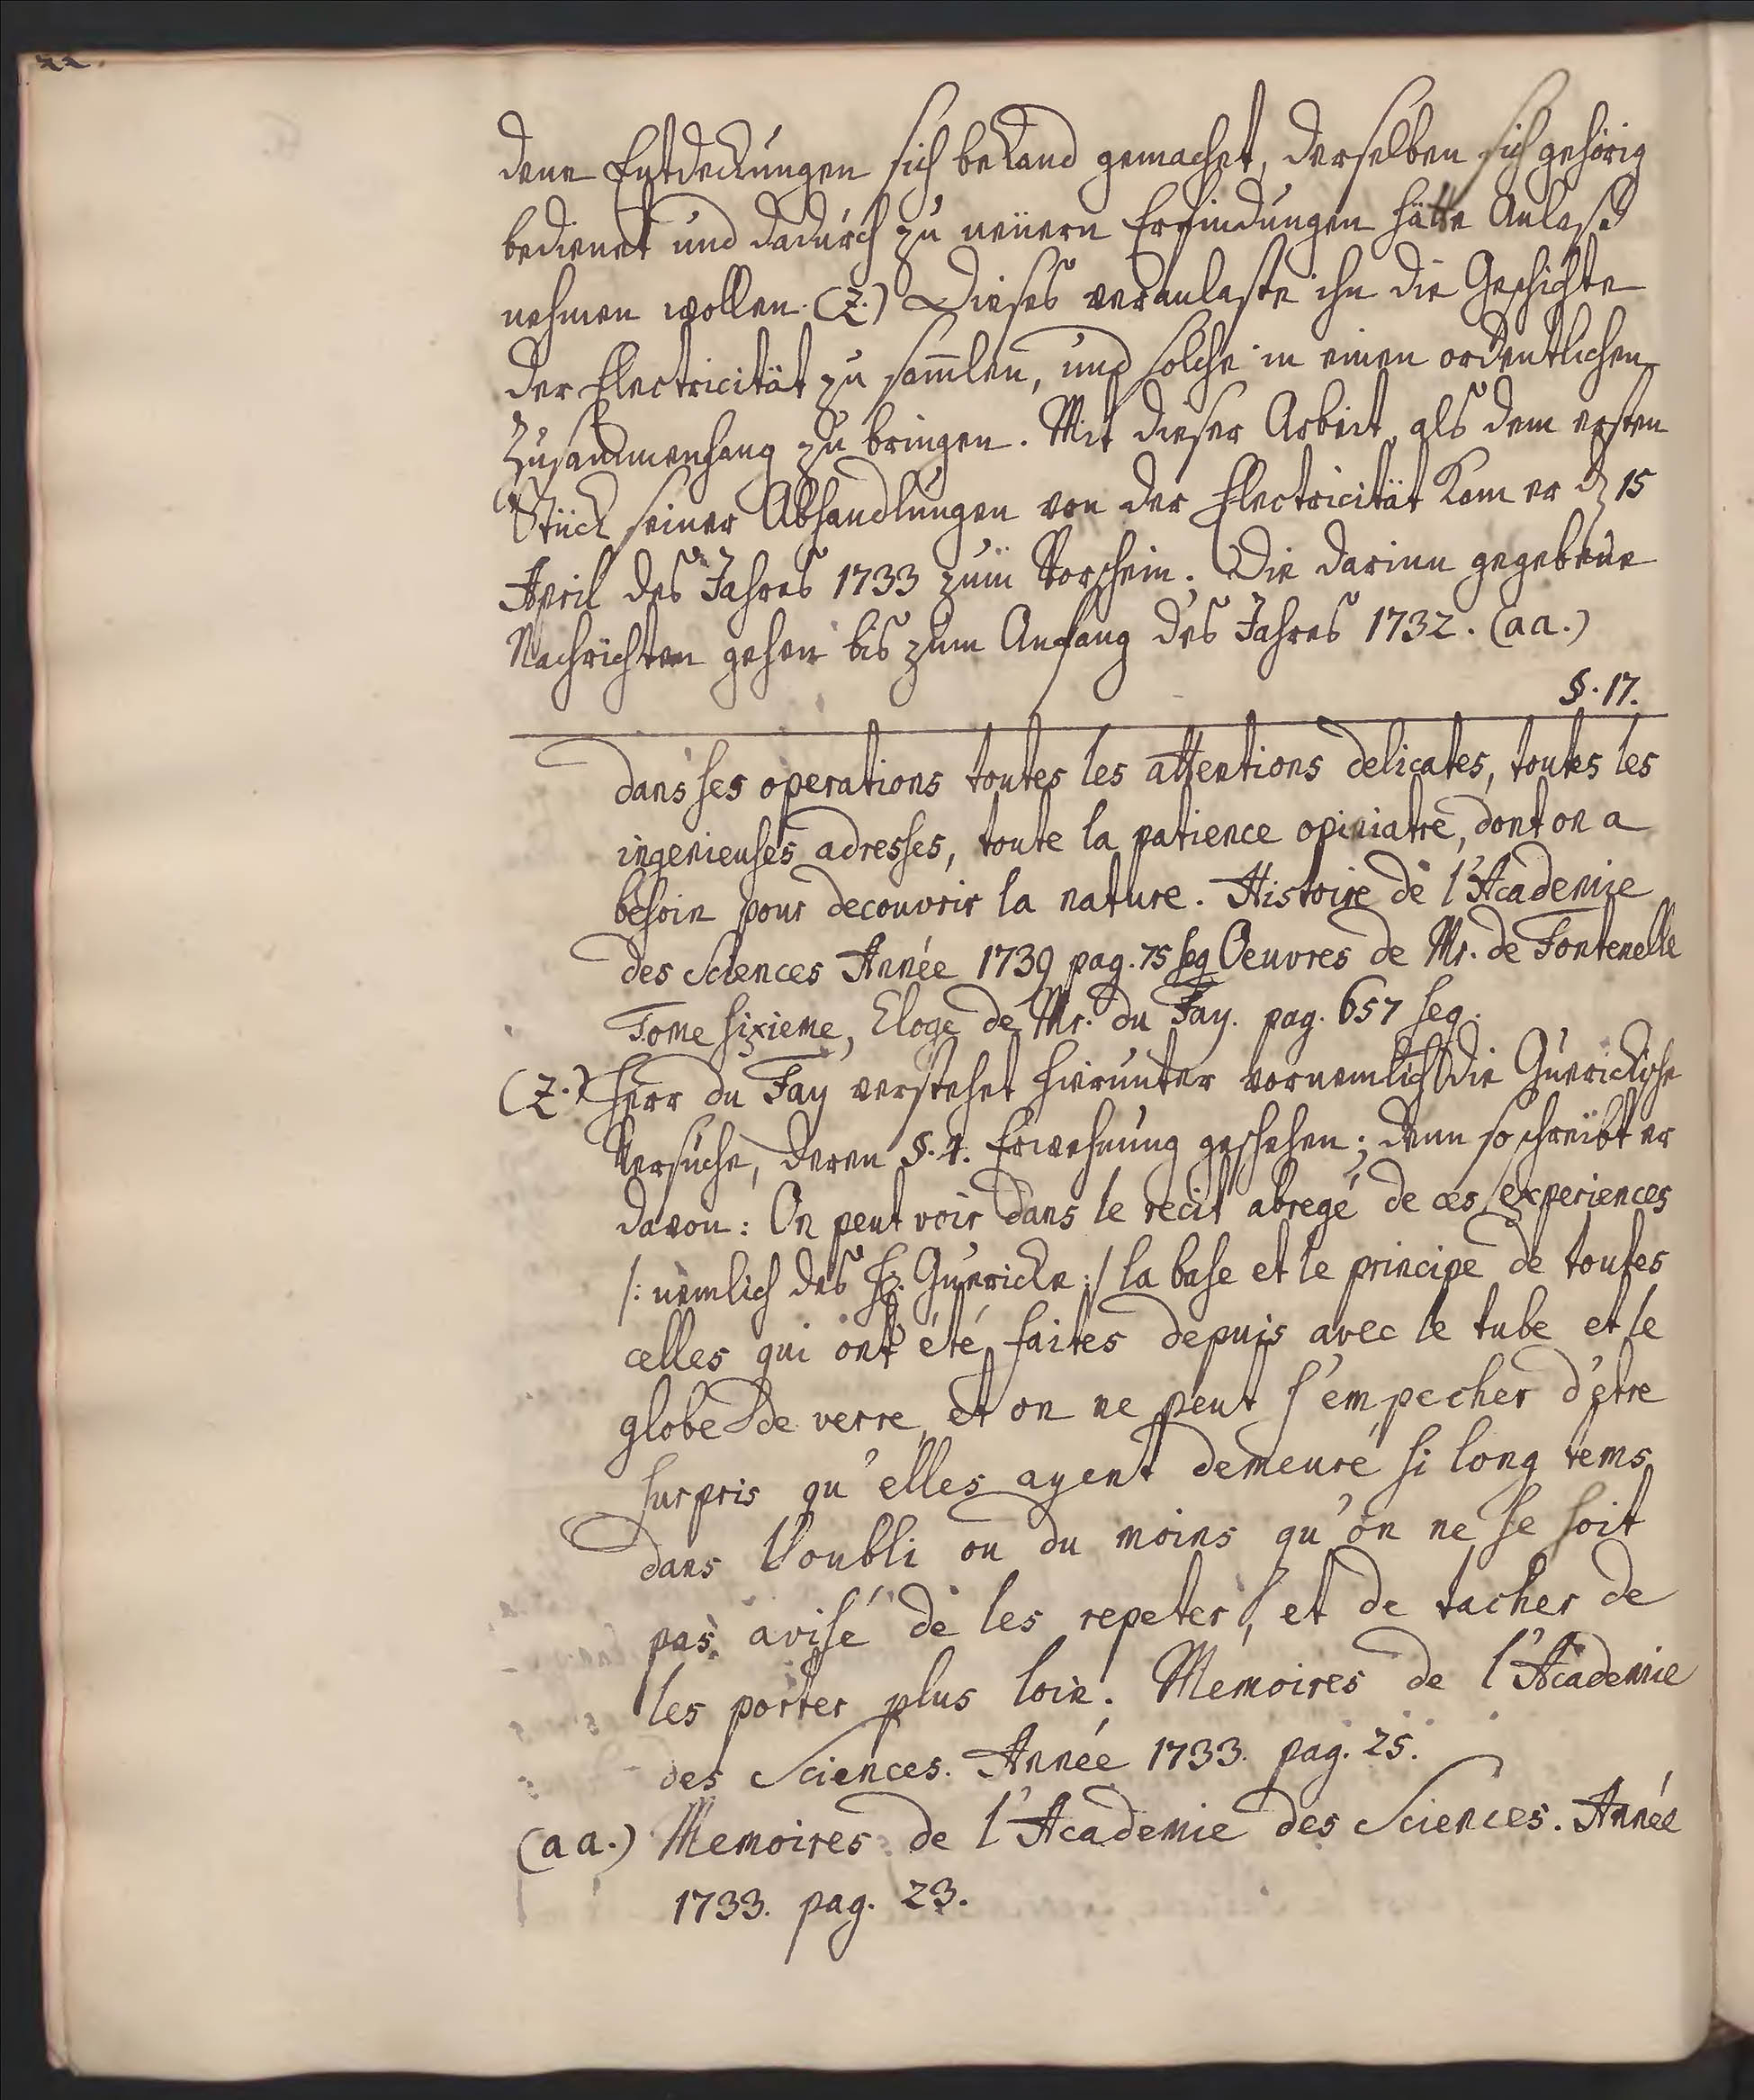 dene Entdeckungen sich bekand gemachet, derselben sich gehörig
bedienet und dadurch zu neüern Erfindungen hätte Anlass
nehmen wollen. (z.) Dieses veranlaste ihn die Geschichte
der Electricität zu som̃len, und solche in einen ordentlichen
Zusammenhang zu bringen. Mit dieser Arbeit als dem ersten
Stück seiner Abhandlungen von der Electricität kam er d 15
April des Jahres 1733 zum Vorschein. Die darinn gegebene
Nachrichten gehen bis zum Anfang des Jahres 1732. (aa.)
§. 17.
dans ses operations toutes les attentions delicates, toutes les
ingenieuses adresses, toute la patience opiniatre, dont on a
besoin pour decouvrir la nature. Histoire de l'Academie
des Sciences Année 1739 pag. 75 seq Oeuvres de Mr. de Fontenelle
Tome sixieme, Eloge de Mr. du Fay. pag. 657 seq.
(z.) Herr du Fay verstehet hierunter vornemlich die Guerickische
Versuche, deren §. 4. Erwehnung geschehen; denn so schreibt er
davon: On peut voir dans le recit abregé de ces experiences
/: nemlich des H. Guericke :/ la base et le principe de toutes
celles qui ont été faites depuis avec le tube et le
globe de verre, et on ne peut s'empecher d'etre
surpris qu'elles ayent demeuré si long tems
dans l'oubli ou du moins qu'on ne se soit
pas avisé de les repeter, et de tacher de
les porter plus loin. Memoires de l'Academie
des Sciences. Année 1733. pag. 25.
(aa.) Memoires de l'Academie des Sciences. Année
1733. pag. 23.